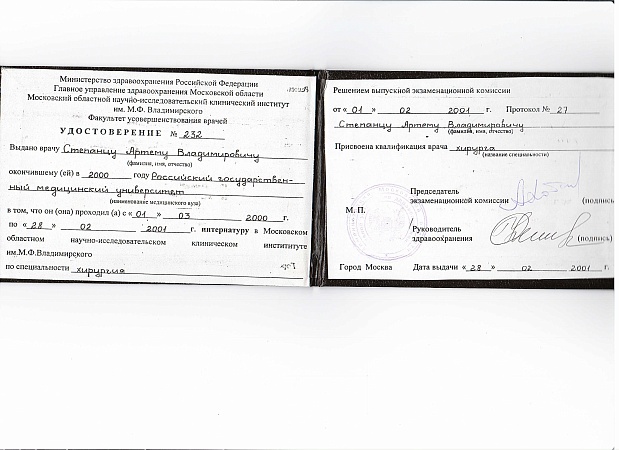 Министерство здравоохранения Российской Федерации
Главное управление здравоохранения Московской области
Московский областной научно-исследовательский клинический институт
им. М.Ф. Владимирского
Факультет усовершенствования врачей
УДОСТОВЕРЕНИЕ № 232
Выдано врачу Степанцу Артему Владимировичу
(фамилия, имя, отчество)
окончившему (ей) в 2000 году Российский государствен-
ный медицинский университет
(наименование медицинского вуза)
в том, что он (она) проходил (а) с «01» 03 2000 г.
по «28» 02 2001 г. интернатуру в Московском
областном научно-исследовательском клиническом институте
им.М.Ф.Владимирского
по специальности хирургия
Решением выпускной экзаменационной комиссии
от «01» 02 2001 г. Протокол № 27
Степанцу Артему Владимировичу
(фамилия, имя, отчество)
Присвоена квалификация врача хирурга
(название специальности)
Председатель
экзаменационной комиссии (подпись
М. П.
Руководитель
здравоохранения (подпись)
Город Москва Дата выдачи «28» 02 2001 г.